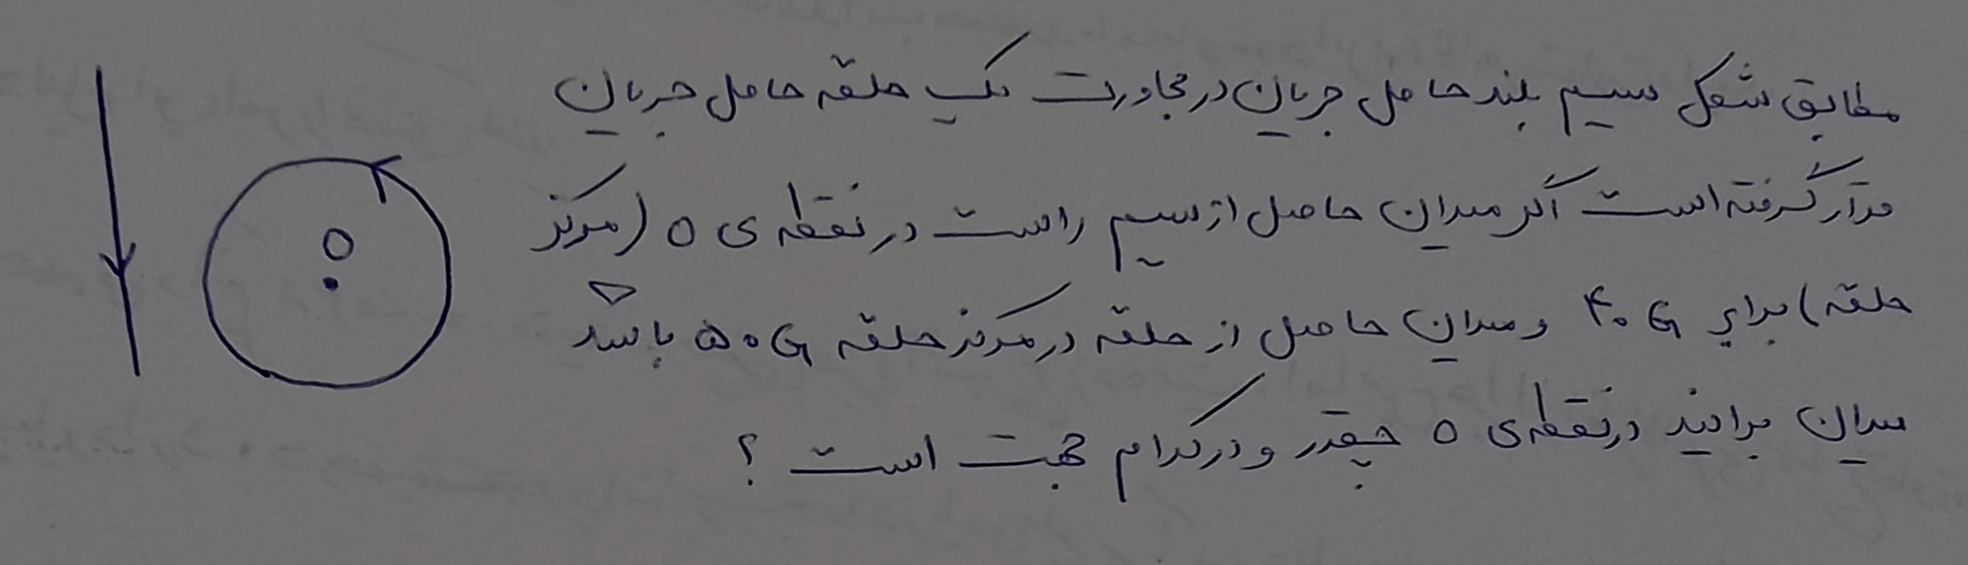 مطابق شکل سیم بلند حامل جریان در مجاورت یک حلقه حامل جریان
قرار گرفته است اگر میدان حاصل از سیم راست در نقطه ی O (مرکز
حلقه) برابر ۴۰ G و میدان حاصل از حلقه در مرکز حلقه ۵۰ G باشد
میدان برایند در نقطه ی O چقدر و در کدام جهت است ؟
O